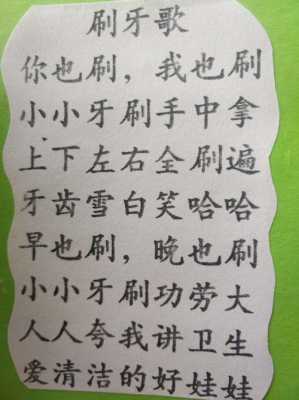 刷牙歌
你也刷，我也刷
小小牙刷手中拿
上下左右全刷遍
牙齿雪白笑哈哈
早也刷，晚也刷
小小牙刷功劳大
人人夸我讲卫生
爱清洁的好娃娃